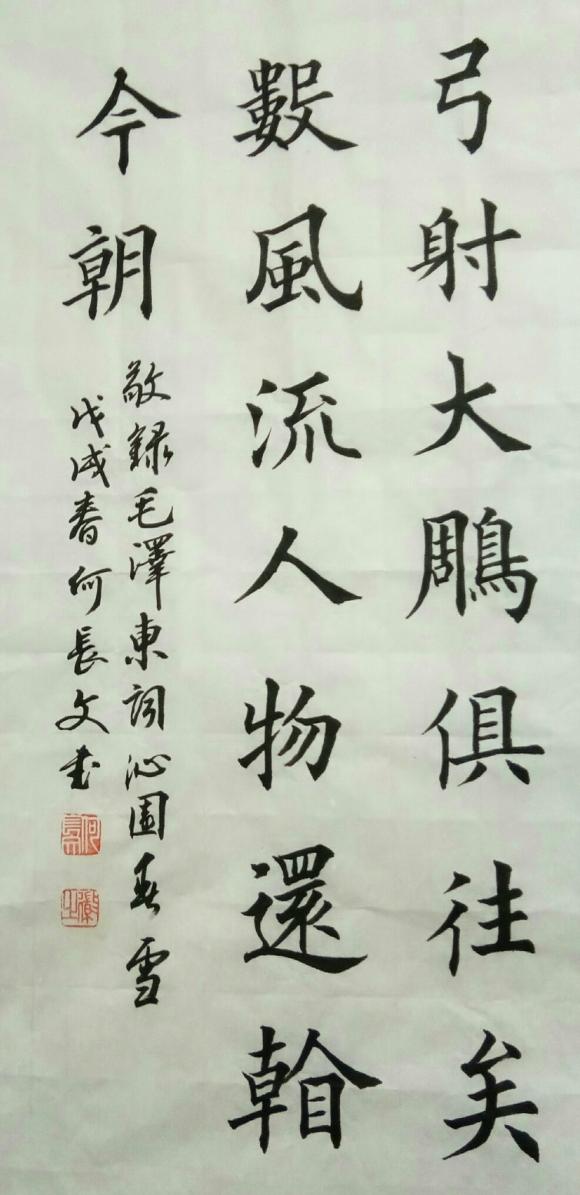 弓射大鵰俱往矣
數風流人物還看
今朝
敬錄毛澤東詞沁園春雪
戊戌春何長文书